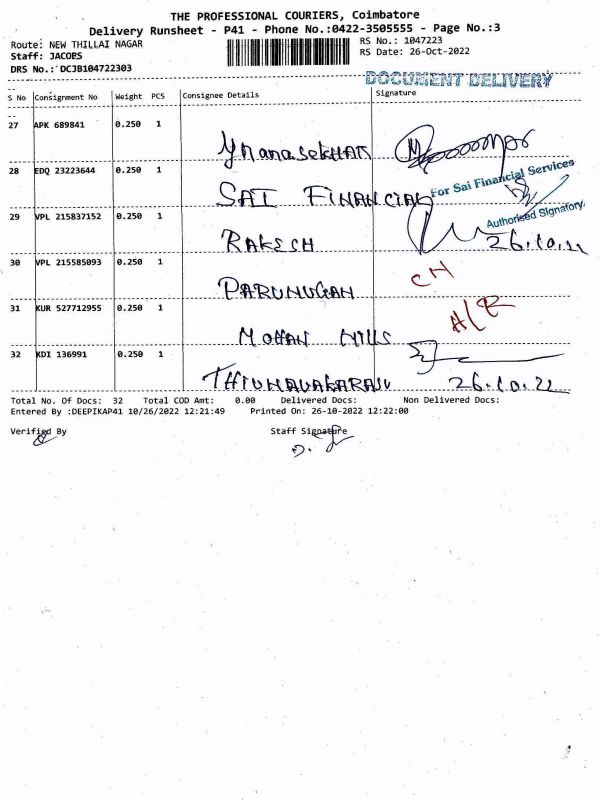 THE PROFESSIONAL COURIERS, Coimbatore
Delivery Runsheet - P41 - Phone No.:0422-3505555 - Page No.:3
Route: NEW THILLAI NAGAR
RS No.: 1047223
Staff: JACOBS
RS Date: 26-Oct-2022
DRS No.: DCJB104722303
DOCUMENT DELIVERY
S No Consignment No Weight PCS Consignee Details Signature
27 APK 689841 0.250 1
GnanaseKHAR
28 EDQ 23223644 0.250 1
SAI FINANCIAL
For Sai Financial Services
Authorised Signatory
29 VPL 215837152 0.250 1
RAKESH 26.10.22
30 VPL 215585093 0.250 1
CH
31 KUR 527712955 0.250 1
MOHAN MILLS
32 KDI 136991 0.250 1
26.10.22
Total No. Of Docs: 32 Total COD Amt: 0.00 Delivered Docs: Non Delivered Docs:
Entered By :DEEPIKAP41 10/26/2022 12:21:49 Printed On: 26-10-2022 12:22:00
Verified By Staff Signature